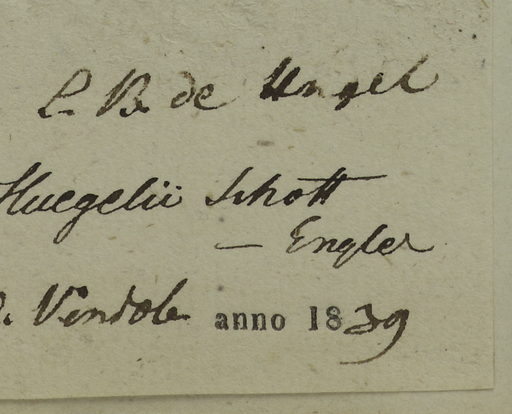 C. B. de Hügel
Huegelii Schott
— Engler
. Vindob. anno 1839